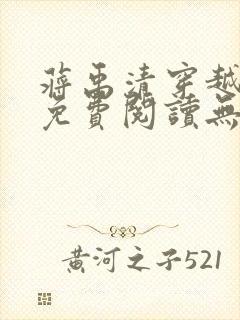 蔣禹清穿越
免費閱讀無
黃河之子521